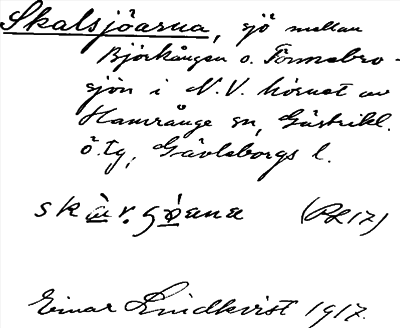 Skalsjöarna, sjö mellan
Björkången o. Tönnebro-
sjön i N.V. hörnet av
Hamrånge sn, Gästrikl.
ö. tg, Gävleborgs l.
skàr.sjö̀ana (PL17)
Einar Lindkvist 1917.